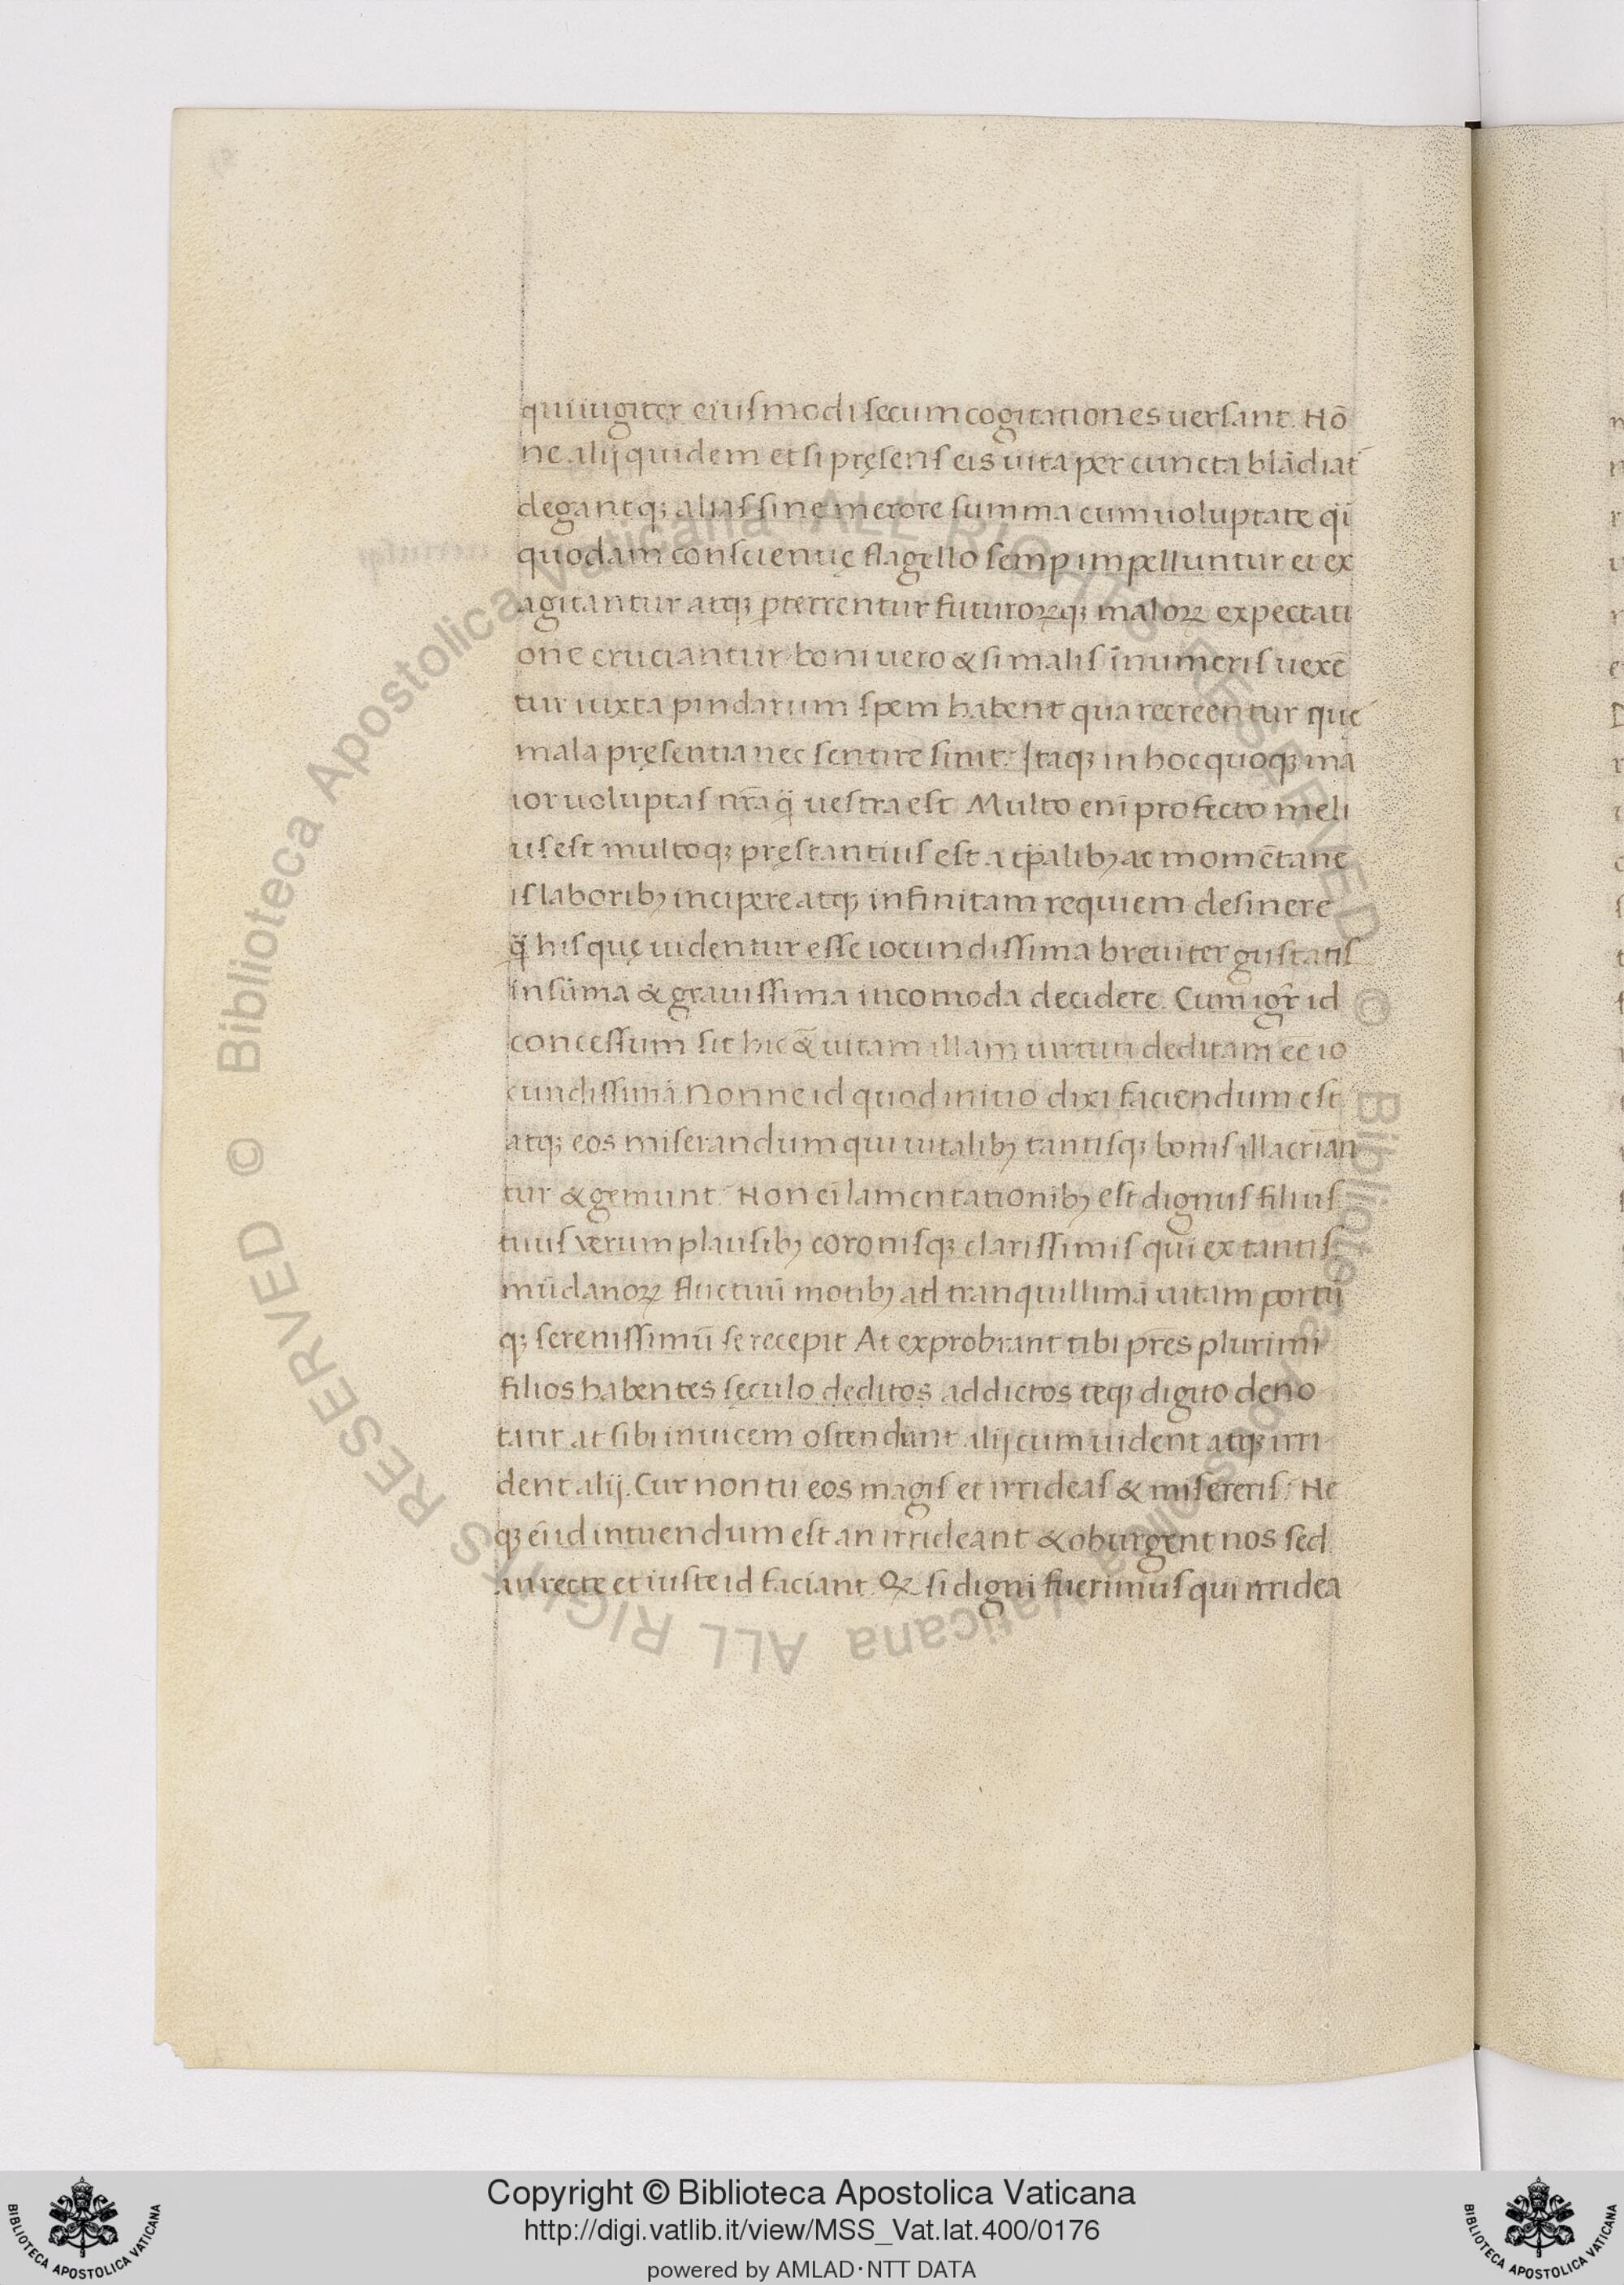 qui iugiter eiusmodi secum cogitationes uersant. Nō
ne alij quidem et si pręsens eis uita per cuncta blādiat᷒
degantq; alias sine merore summa cum uoluptate qͥ
quodam conscientię flagello semꝑ impelluntur et ex
agitantur atq; ꝑterrentur futuroꝝq; maloꝝ expectati
one cruciantur boni uero & si malis īnumeris uexē
tur iuxta pindarum spem habent qua recreentur quę
mala pręsentia nec sentire sinit. Itaq; in hoc quoq; ma
ior uoluptas nr̄a q̄ uestra est. Multo enī profecto meli
us est multoq; pręstantius est a tp̄alib; ac momētane
is laborib; incipere atq; in finitam requiem desinere
q̄ his quę uidentur esse iocundissima breuiter gustatis
in sūma & grauissima incomoda decidere. Cum igr̄ id
concessum sit hic &̄ uitam illam uirtuti deditam eē io
cundissimā. Nonne id quod initio dixi faciendum est
atq; eos miserandum qui uitalib; tantisq; bonis illacrīan
tur & gemunt. Non ei lamentationib; est dignus filius
tuus uerum plausib; coronisq; clarissimis qui ex tantis
mūdanoꝝ fluctuū motib; ad tranquillimā uitam portū
q; serenissimū se recepit At exprobrant tibi pr̄es plurimi
filios habentes sęculo deditos addictos teq; digito deno
tant at sibi inuicem ostendunt alij cum uident atq; irri
dent alij. Cur non tu eos magis et irrideas & misereris? Ne
q; eīid intuendum est an irrideant & oburgent nos sed
an recte et iuste id faciant. Qꝫ si digni fuerimus qui irridea
Copyright © Biblioteca Apostolica Vaticana
http://digi.vatlib.it/view/MSS_Vat.lat.400/0176
powered by AMLAD·NTT DATA
BIBLIOTECA APOSTOLICA VATICANA
BIBLIOTECA APOSTOLICA VATICANA
© Biblioteca Apostolica Vaticana ALL RIGHTS RESERVED © Biblioteca Apostolica Vaticana ALL RIGHTS RESERVED